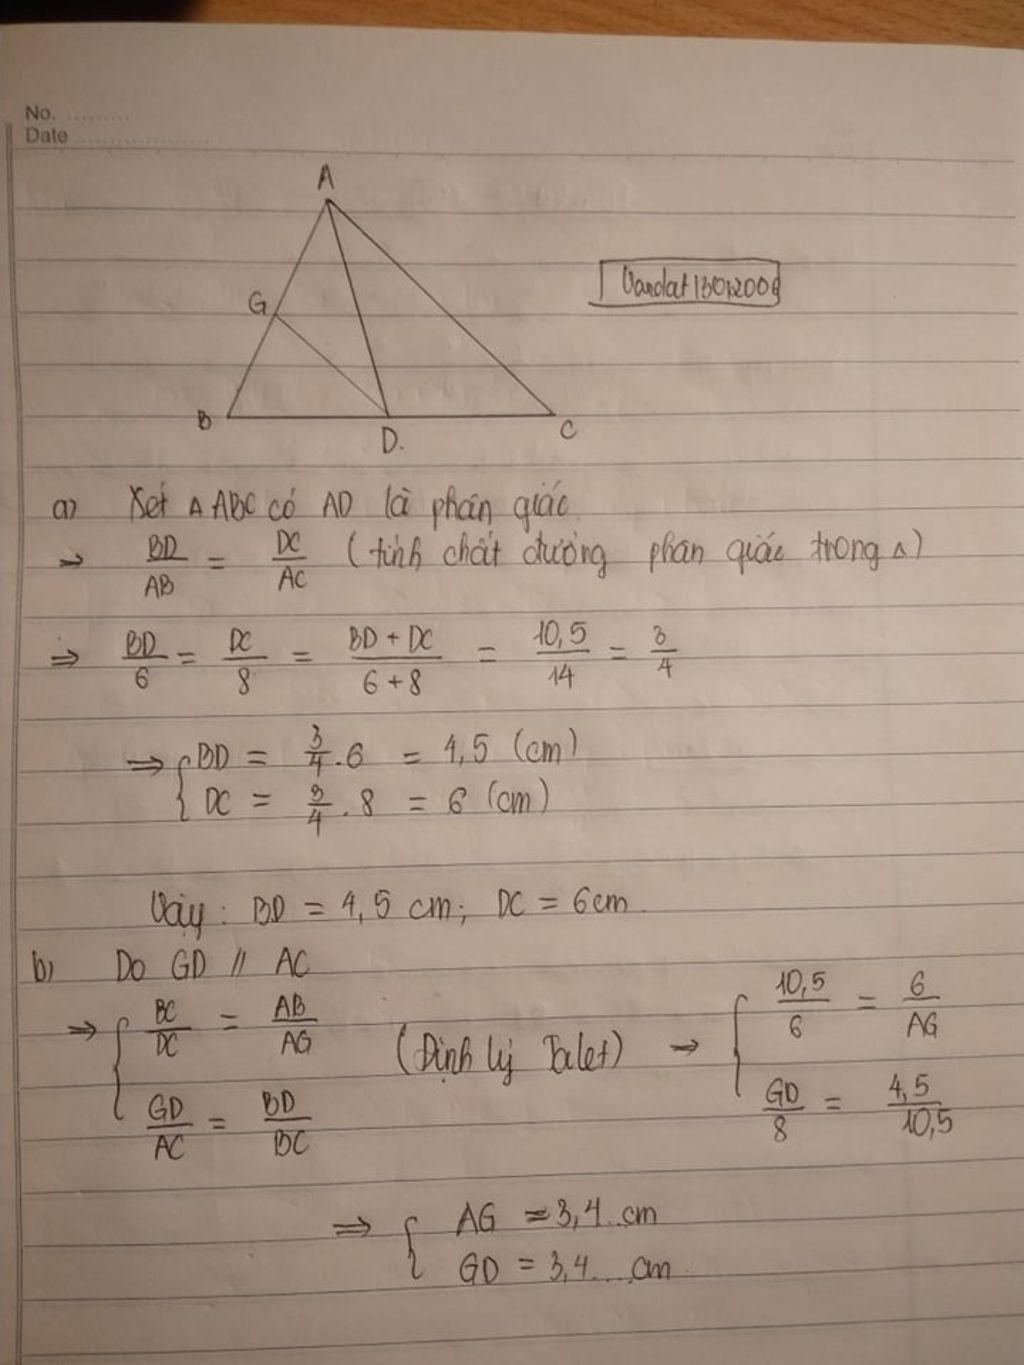 No. .........
Date ...................
A
Vandat13012006
G
B
D.
C
a) Xét Δ ABC có AD là phân giác.
→ BD/AB = DC/AC (tính chất đường phân giác trong Δ)
⇒ BD/6 = DC/8 = BD + DC/6 + 8 = 10,5/14 = 3/4
⇒ { BD = 3/4 . 6 = 4,5 (cm)
DC = 3/4 . 8 = 6 (cm)
Vậy : BD = 4,5 cm; DC = 6cm.
b) Do GD // AC
⇒ { BC/DC = AB/AG (Định lý Talet) → { 10,5/6 = 6/AG
GD/AC = BD/BC GD/8 = 4,5/10,5
⇒ { AG = 3,4.. cm
GD = 3,4.... cm